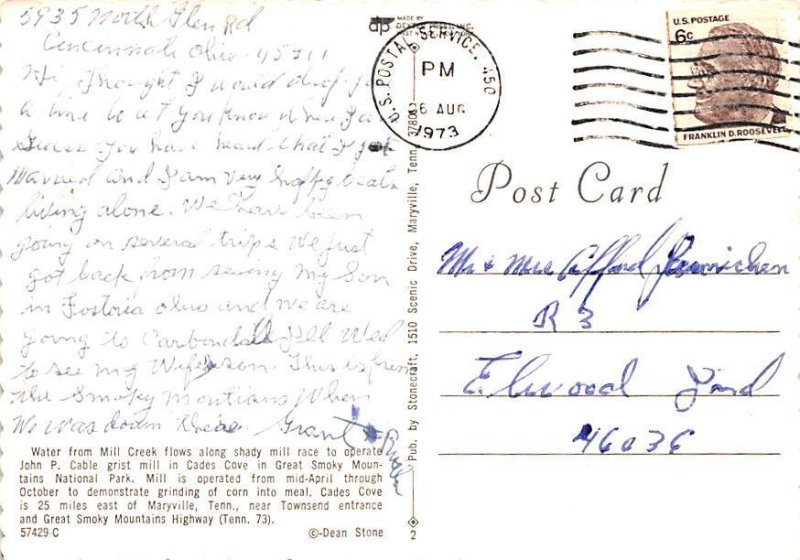 5935 North Glen Rd
Cincinnati Ohio 45211
Hi, Thought I would drop
a line to let you know
Guess you have heard that I got
Married and I am very happy beats
living alone. We have been
going on several trips We just
got back from seeing my Son
in Fostoria ohio and we are
going to Carbondall Ill Wed
to see my Wifes son. This is from
the Smoky montians When
We was down there. Grant &
Water from Mill Creek flows along shady mill race to operate
John P. Cable grist mill in Cades Cove in Great Smoky Moun-
tains National Park. Mill is operated from mid-April through
October to demonstrate grinding of corn into meal. Cades Cove
is 25 miles east of Maryville, Tenn., near Townsend entrance
and Great Smoky Mountains Highway (Tenn. 73).
57429-C ©-Dean Stone
2
Pub. by Stonecraft, 1510 Scenic Drive, Maryville, Tenn.
dp MADE BY
U.S. POSTAL SERVICE. 450
PM
6 AUG
1973
U.S. POSTAGE
6c
FRANKLIN D. ROOSEVELT
Post Card
Mr & Mrs
R 3
Elwood Ind
46036